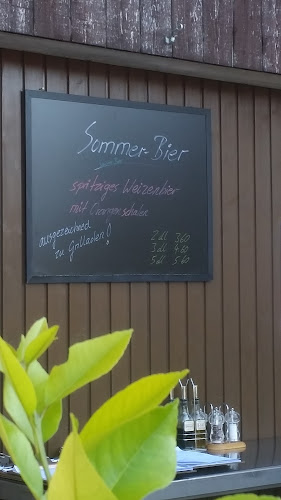 Sommer-Bier
spritziges Weizenbier
mit Zitronenschalen
ausgezeichnet
zu Grilladen!
2dl 3.60
3dl 4.60
5dl 5.60